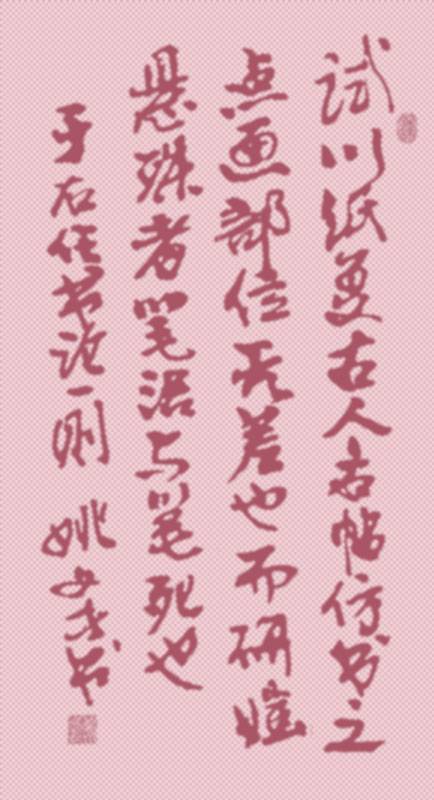 试以纸复古人名帖仿书之
点画部位无差也而研媸
悬殊者笔活与笔死也
于右任书论一则 姚文才书